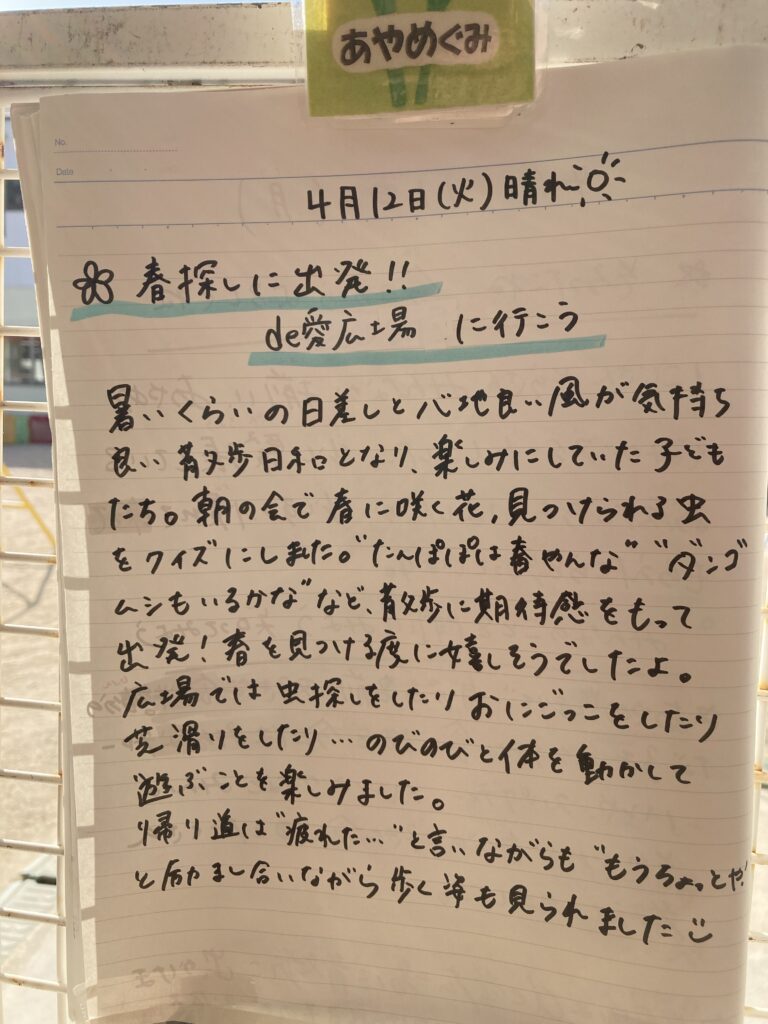 あやめぐみ
No.
Date
4月12日(火)晴れ
春探しに出発!!
de愛広場 に行こう
暑いくらいの日差しと心地良い風が気持ち
良い散歩日和となり、楽しみにしていた子ども
たち。朝の会で春に咲く花,見つけられる虫
をクイズにしました。"たんぽぽは春やんな" "ダンゴ
ムシもいるかな"など、散歩に期待感をもって
出発!春を見つける度に嬉しそうでしたよ。
広場では虫探しをしたりおにごっこをしたり
芝滑りをしたり…のびのびと体を動かして
遊ぶことを楽しみました。
帰り道は"疲れた…"と言いながらも"もうちょっとや"
と励まし合いながら歩く姿も見られました